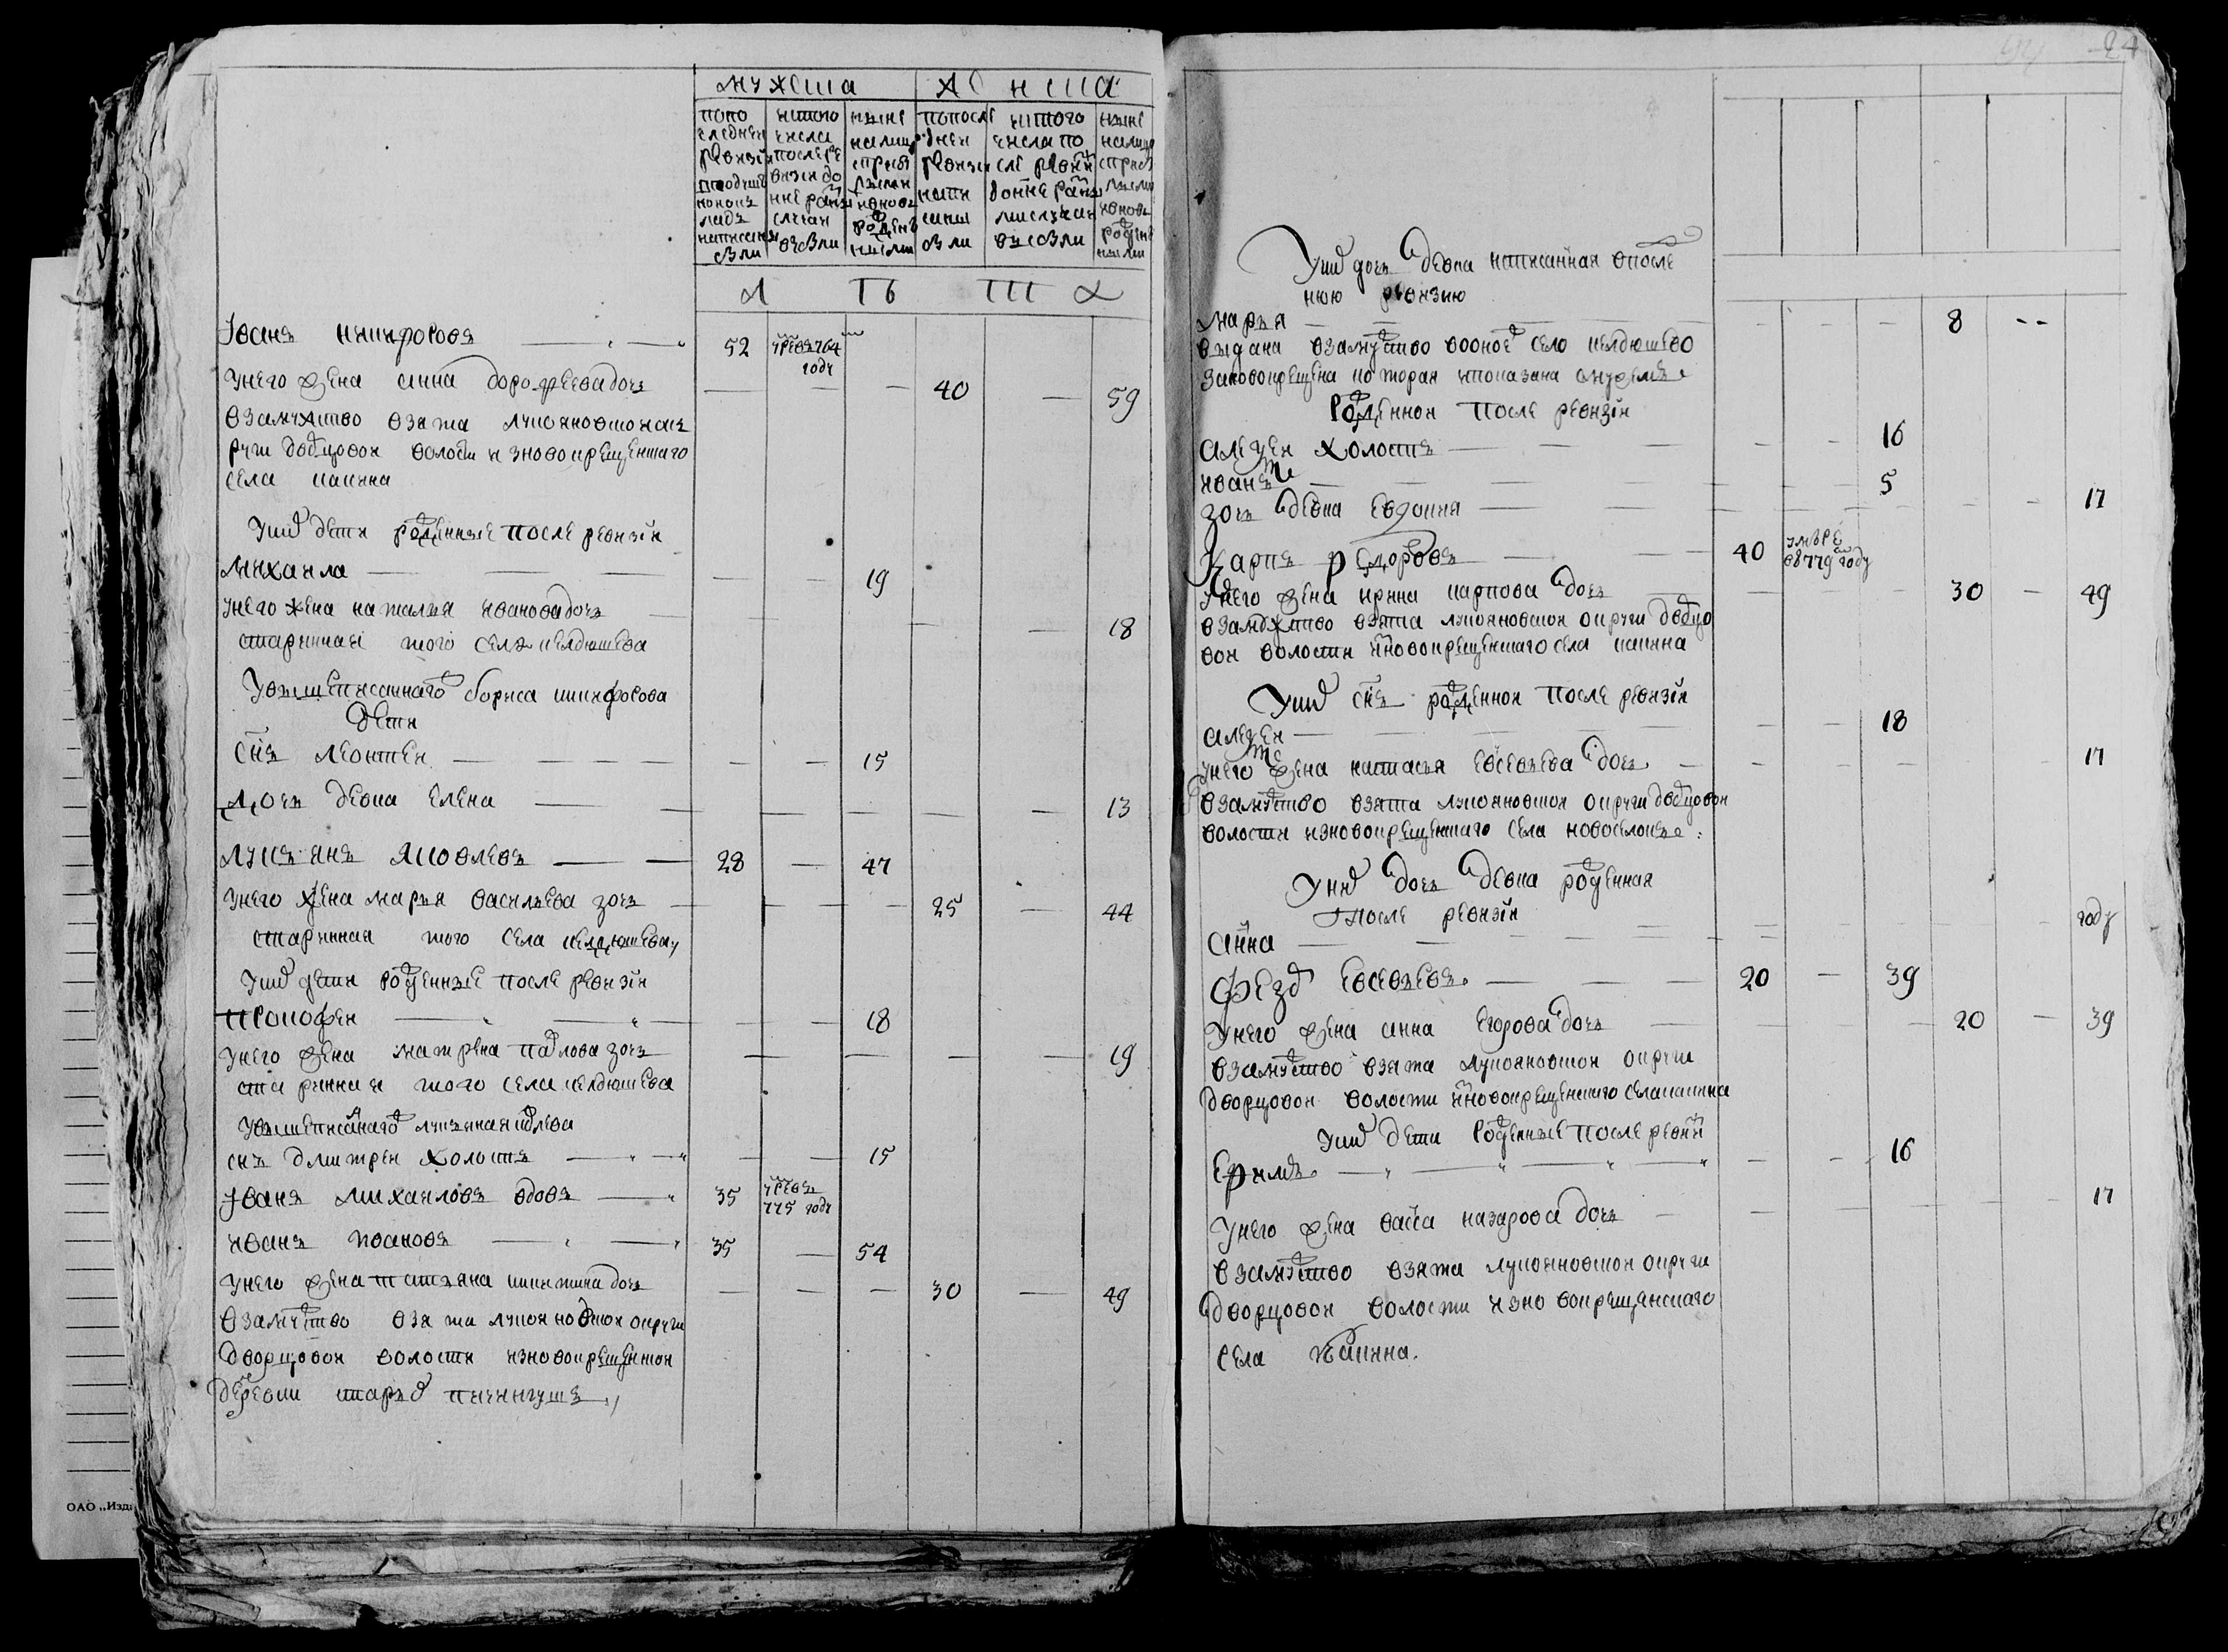 24
мужеска
женска
попо
следнеи
ревизіи
подуш
ному ок
ладу
написаны
были
ис того
числа
после ре
визіи до
ныне разн
случаи
выбыли
ныне
налицо
с прибы
лыми
и вновь
рожден
ными
попосле
днеи
ревизіи
написа
ны
были
ис того
числа по
сле ревизіи
до ныне разны
ми случаи
выбыли
ныне
налицо
с прибы
лыми
и вновь
рожден
ными
Л Т Ѣ Т Л
Іванъ никифоровъ 52 умре въ 764 году
унего жена анна дорофеева дочь 40 59
взамужство взята лукояновской ок
руги дворцовои волости из новокрещенского
села какина
уних дети рожденные после ревизіи
михаила 19
унего жена наталья иванова дочь 18
старинная того села келдюшева
У вышеписанного бориса никифорова
дети
снъ леонтеи 15
дочь девка елена 13
лукьянъ яковлевъ 28 47
унего жена марья васильева дочь 25 44
старинная того села келдюшева
уних дети рожденные после ревизіи
прокофеи 18
унего жена матрена павлова дочь 19
старинная того села келдюшева
У вышеписанного лукьяна яковлева
снъ дмитреи холостъ 15
Іванъ михаиловъ вдовъ 35 умре въ 775 году
иванъ ивановъ 35 54
унего жена татьяна никитина дочь 30 49
взамужство взята лукояновскои округи
дворцовои волости из новокрещенскои
деревни старых пичингушъ
Уних дочь девка написанная впосле
нюю ревизию
марья 8
выдана взамужство в оное село келдюшево
за новокрещена которая и показана с мужемъ
Рожденнои после ревизіи
алексеи холостъ 16
иванъ 5
дочь девка евдокия 17
Карпъ Федоровъ 40 умре в 779 году
унего жена ирина карпова дочь 30 49
взамужство взята лукояновскои округи дворцо
вои волости из новокрещенского села какина
Уних снъ рожденнои после ревизіи
алексеи 18
унего жена настасья евсевьева дочь 17
взамужство взята лукояновскои округи дворцовои
волости из новокрещенского села новоселокъ
Уних дочь девка рожденная
после ревизіи
анна году
Федор евсевьевъ 20 39
Унего жена анна егорова дочь 20 39
взамужство взята лукояновскои округи
дворцовои волости из новокрещенского села какина
уних дети рожденные после ревизіи
Ефимъ 16
Унего жена васса назарова дочь 17
взамужство взята лукояновскои округи
дворцовои волости из новокрещенского
села какина
ОАО „Изд